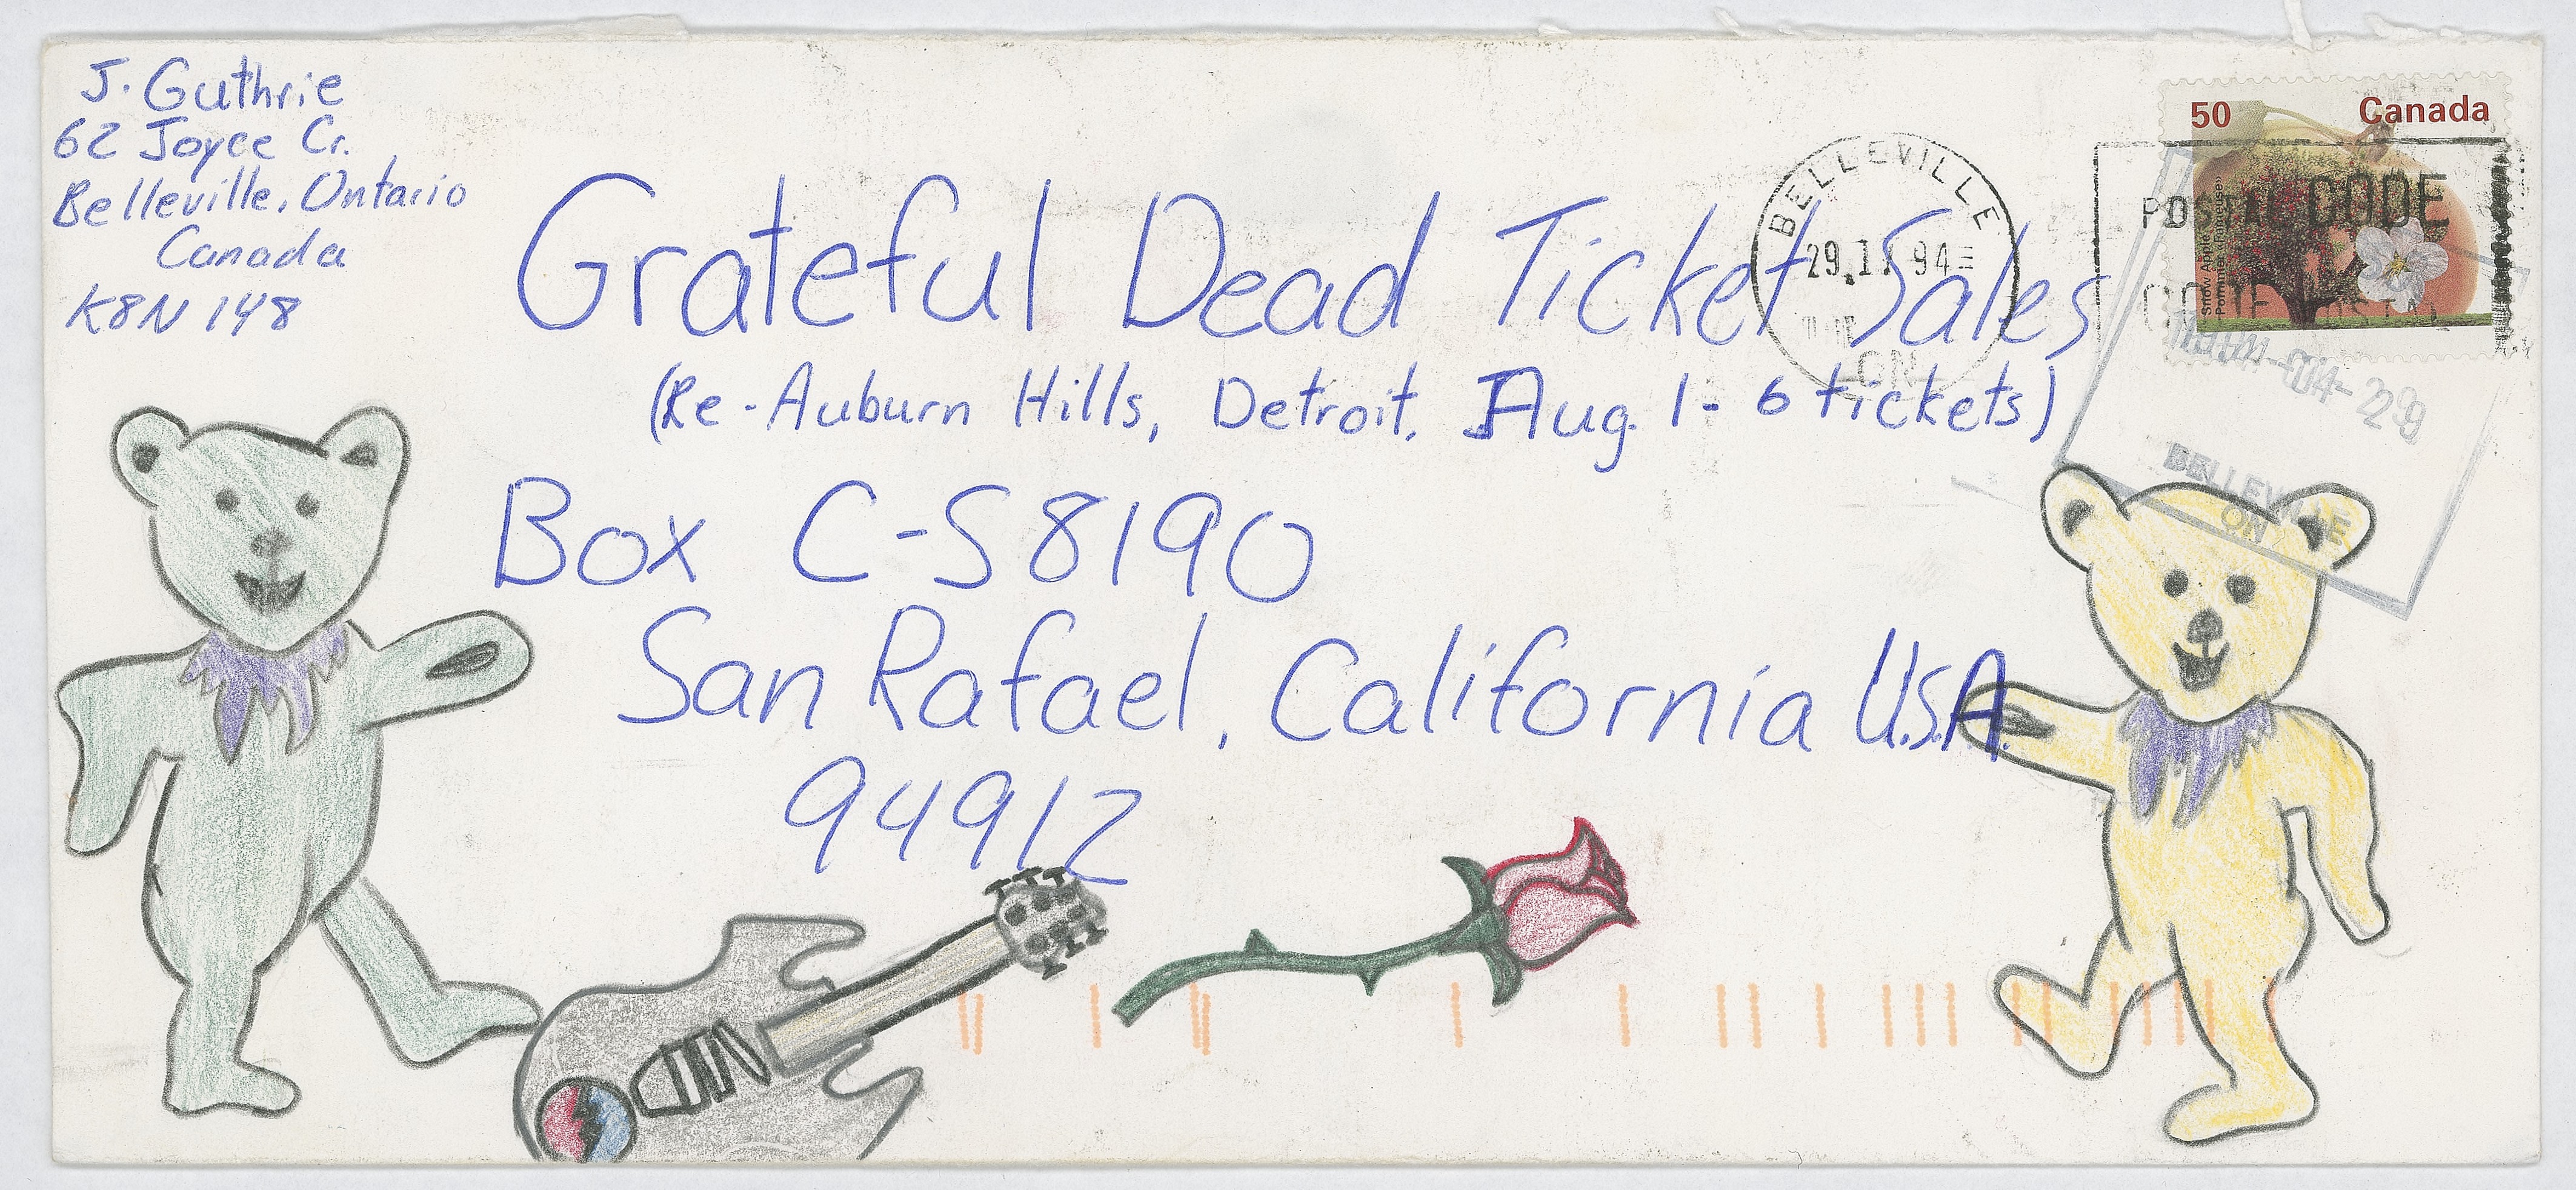 J. Guthrie
62 Joyce Cr.
Belleville, Ontario
Canada
K8N 1Y8
Grateful Dead Ticket Sales
(Re-Auburn Hills, Detroit, Aug. 1 - 6 tickets)
Box C-S8190
San Rafael, California U.S.A.
94912
BELLEVILLE
29.11 94
ON
50 Canada
Snow Apple
Pommier Fameuse
POSTAL CODE
CODE POSTAL
BELLEVILLE
ON